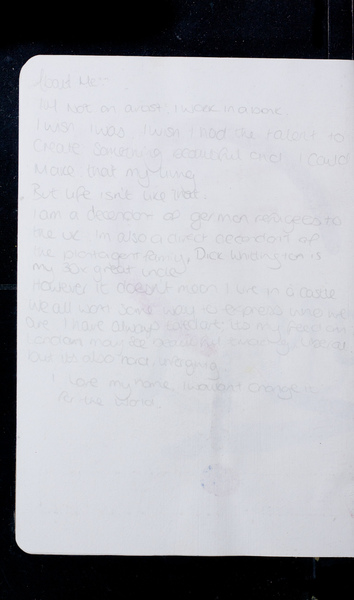 About Me...
I'M Not an artist, I work in a bank.
I wish I was, I wish I had the talent to
create something beautiful and I could
Make that my living
But life isn't like that.
I am a decendant of german refugees to
the UK. Im also a direct decendant of
the plantagent family, Dick Whittington is
my 30x great uncle
However it doesn't mean I live in a castle
We all want some way to express who we
are. I have always
London
but its also hard, and
I Love my home, I wouldnt change it
for the world.